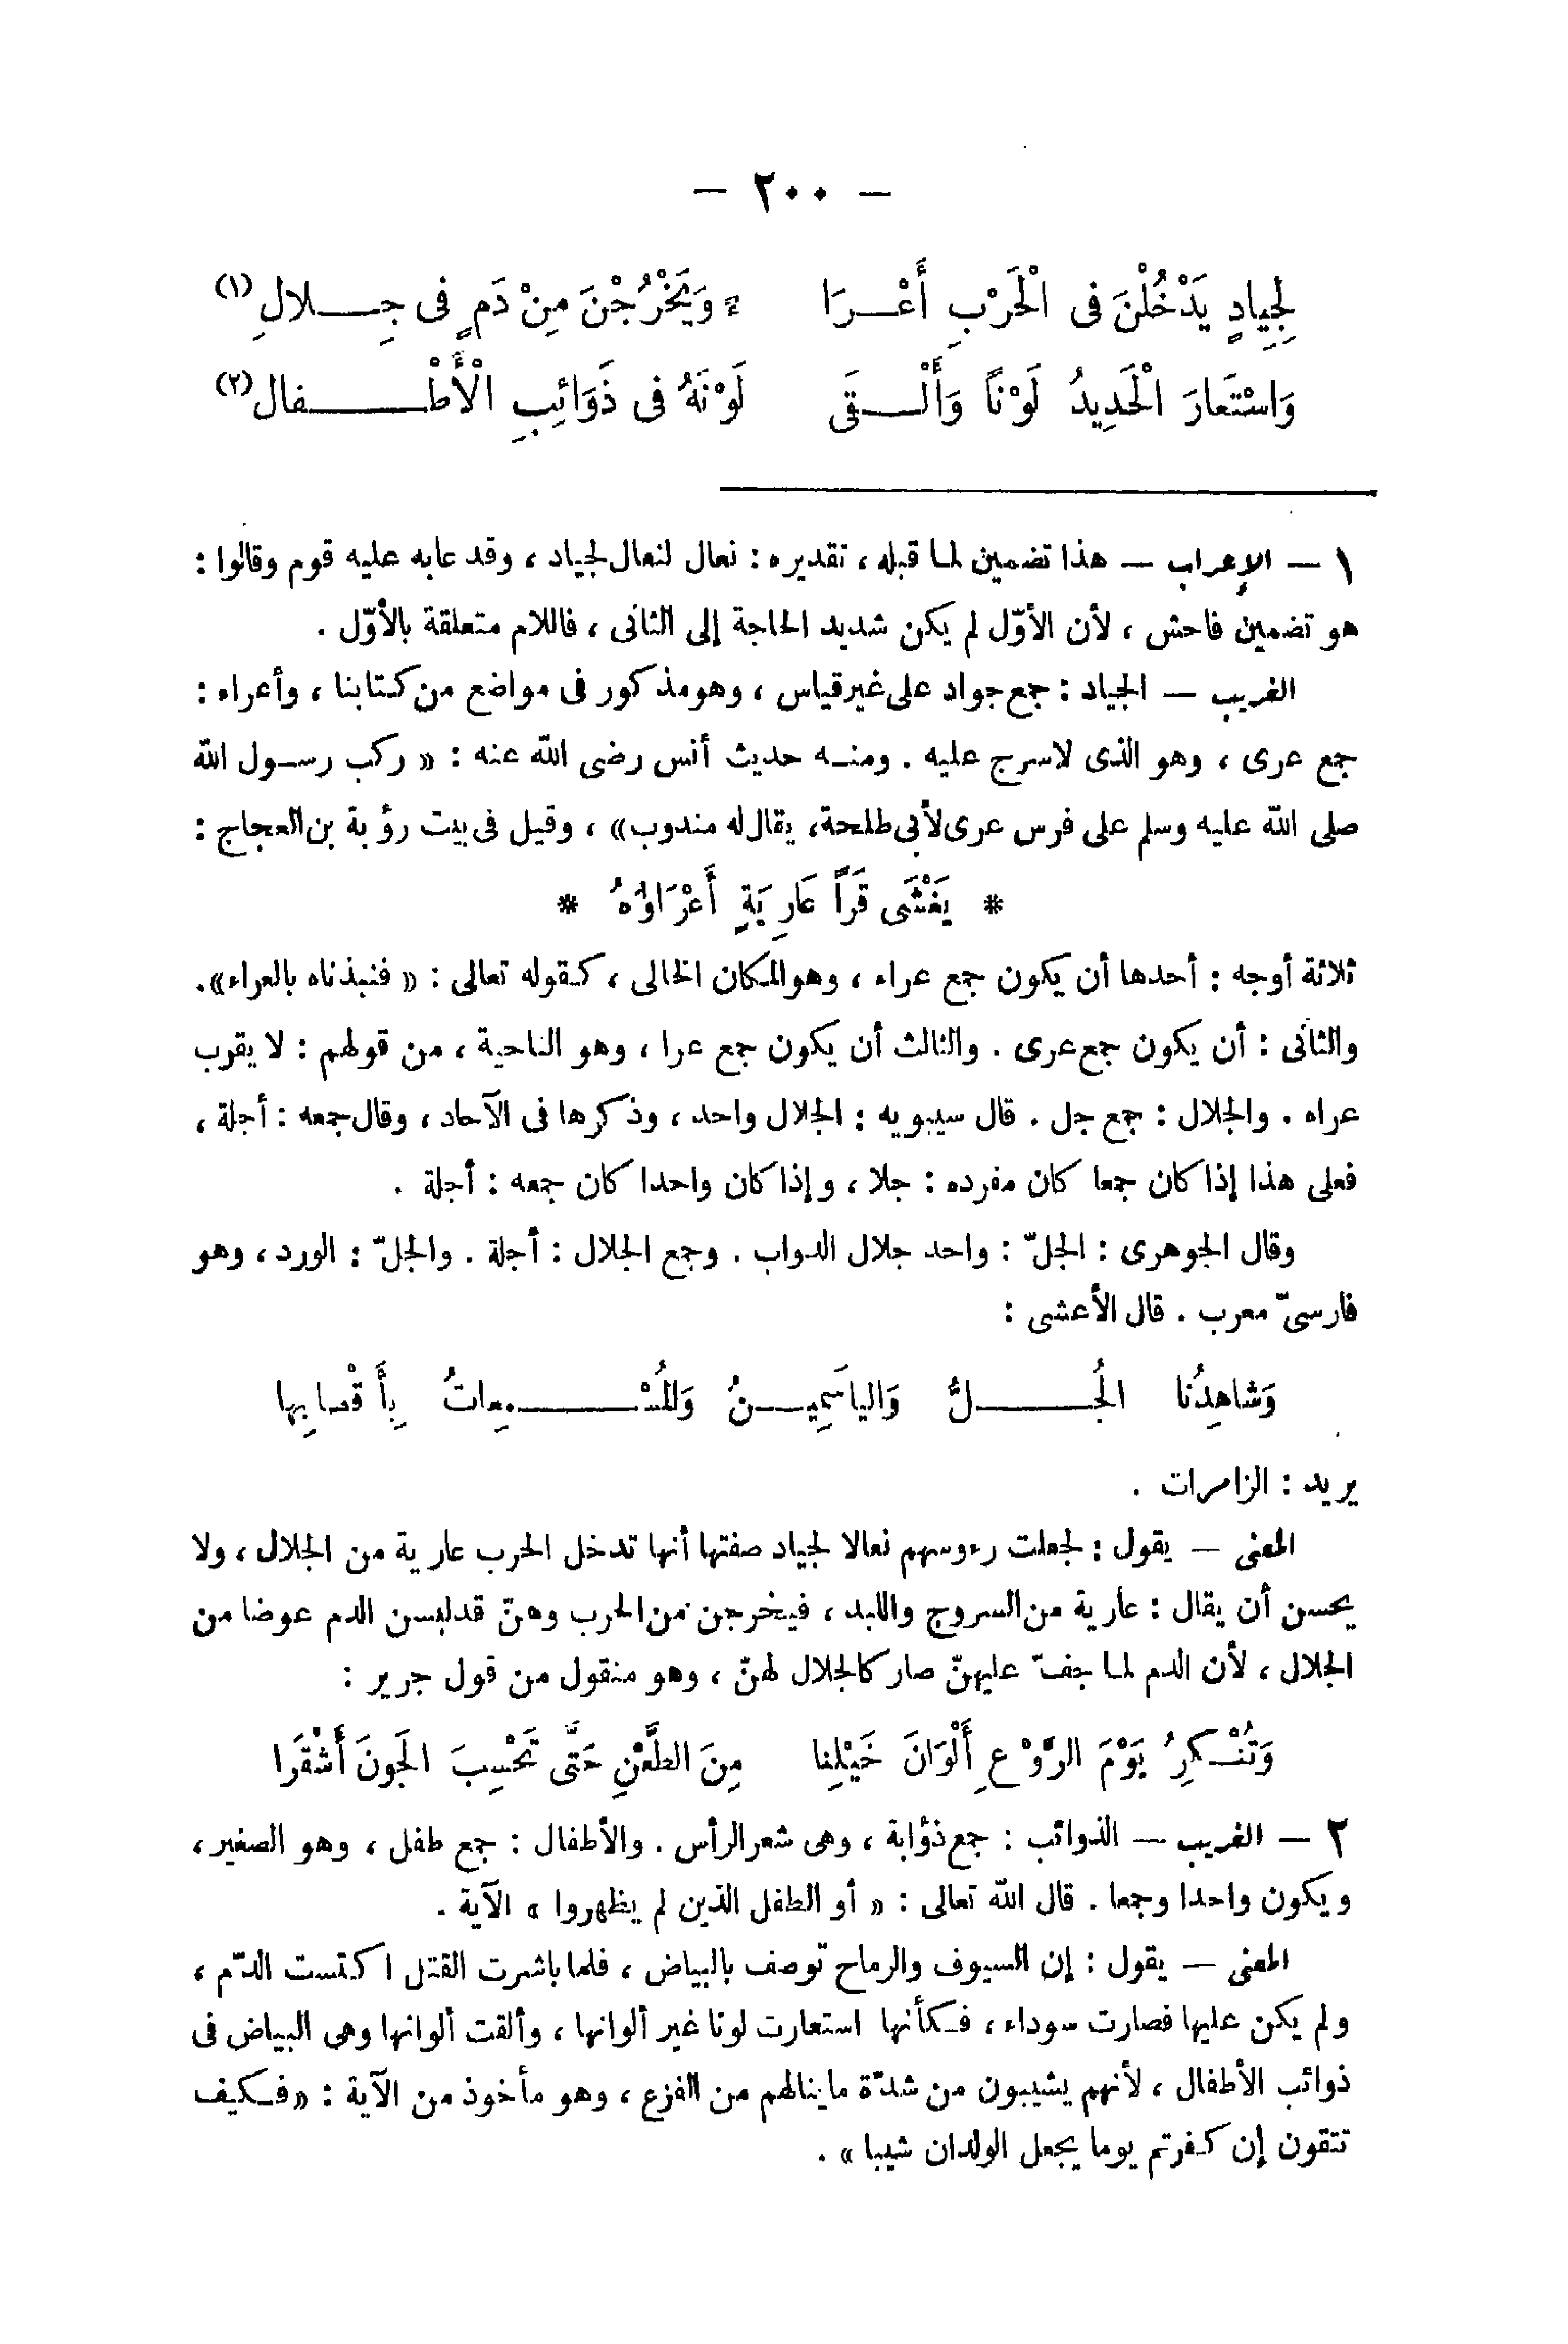 — ٢٠٠ —
لِجِيادٍ يَدْخُلْنَ فى الْحَرْبِ أَعْـــرَا ءً وَيَخْرُجْنَ مِنْ دَمٍ فى جِـــلالِ (١)
وَاسْتَعَارَ الْحَدِيدُ لَوْناً وَأَلْـــقَى لَوْنَهُ فى ذَوَائِبِ الْأَطْـــفالِ (٢)
١ — الإعراب — هذا تضمين لما قبله ، تقديره : نعال لنعال لجياد ، وقد عابه عليه قوم وقالوا :
هو تضمين فاحش ، لأن الأوّل لم يكن شديد الحاجة إلى الثانى ، فاللام متعلقة بالأوّل .
الغريب — الجياد : جمع جواد على غير قياس ، وهو مذكور فى مواضع من كتابنا ، وأعراء :
جمع عرى ، وهو الذى لاسرج عليه . ومنه حديث أنس رضى الله عنه : « ركب رسول الله
صلى الله عليه وسلم على فرس عرى لأبى طلحة، يقال له مندوب» ، وقيل فى بيت رؤبة بن العجاج :
* يَغْشَى قَرَاً عَارِيَةٍ أَعْرَاؤُهُ *
ثلاثة أوجه : أحدها أن يكون جمع عراء ، وهو المكان الخالى ، كقوله تعالى : « فنبذناه بالعراء».
والثانى : أن يكون جمع عرى . والثالث أن يكون جمع عرا ، وهو الناحية ، من قولهم : لا يقرب
عراه . والجلال : جمع جل . قال سيبويه : الجلال واحد ، وذكرها فى الآحاد ، وقال جمعه : أجلة ،
فعلى هذا إذا كان جمعا كان مفرده : جلا ، وإذا كان واحدا كان جمعه : أجلة .
وقال الجوهرى : الجلّ : واحد جلال الدواب . وجمع الجلال : أجلة . والجلّ : الورد ، وهو
فارسىّ معرب . قال الأعشى :
وَشاهِدُنا الجُـــلُّ وَالياسَمِيـــنُ وَالمُسْـــمِعاتُ بِأَقْصابِها
يريد : الزامرات .
المعنى — يقول : لجعلت رءوسهم نعالا لجياد صفتها أنها تدخل الحرب عارية من الجلال ، ولا
يحسن أن يقال : عارية من السروج واللبد ، فيخرجن من الحرب وهنّ قد لبسن الدم عوضا من
الجلال ، لأن الدم لما جفّ عليهنّ صار كالجلال لهنّ ، وهو منقول من قول جرير :
وَتُنْكِرُ يَوْمَ الرَّوْعِ أَلْوَانَ خَيْلِنا مِنَ الطَّعْنِ حَتَّى تَحْسِبَ الجَونَ أَشْقَرَا
٢ — الغريب — الذوائب : جمع ذؤابة ، وهى شعر الرأس . والأطفال : جمع طفل ، وهو الصغير ،
ويكون واحدا وجمعا . قال الله تعالى : « أو الطفل الذين لم يظهروا » الآية .
المعنى — يقول : إن السيوف والرماح توصف بالبياض ، فلما باشرت القتل اكتست الدّم ،
ولم يكن عليها فصارت سوداء ، فكأنها استعارت لونا غير ألوانها ، وألقت ألوانها وهى البياض فى
ذوائب الأطفال ، لأنهم يشيبون من شدّة ما ينالهم من الفزع ، وهو مأخوذ من الآية : « فكيف
تتقون إن كفرتم يوما يجعل الولدان شيبا » .